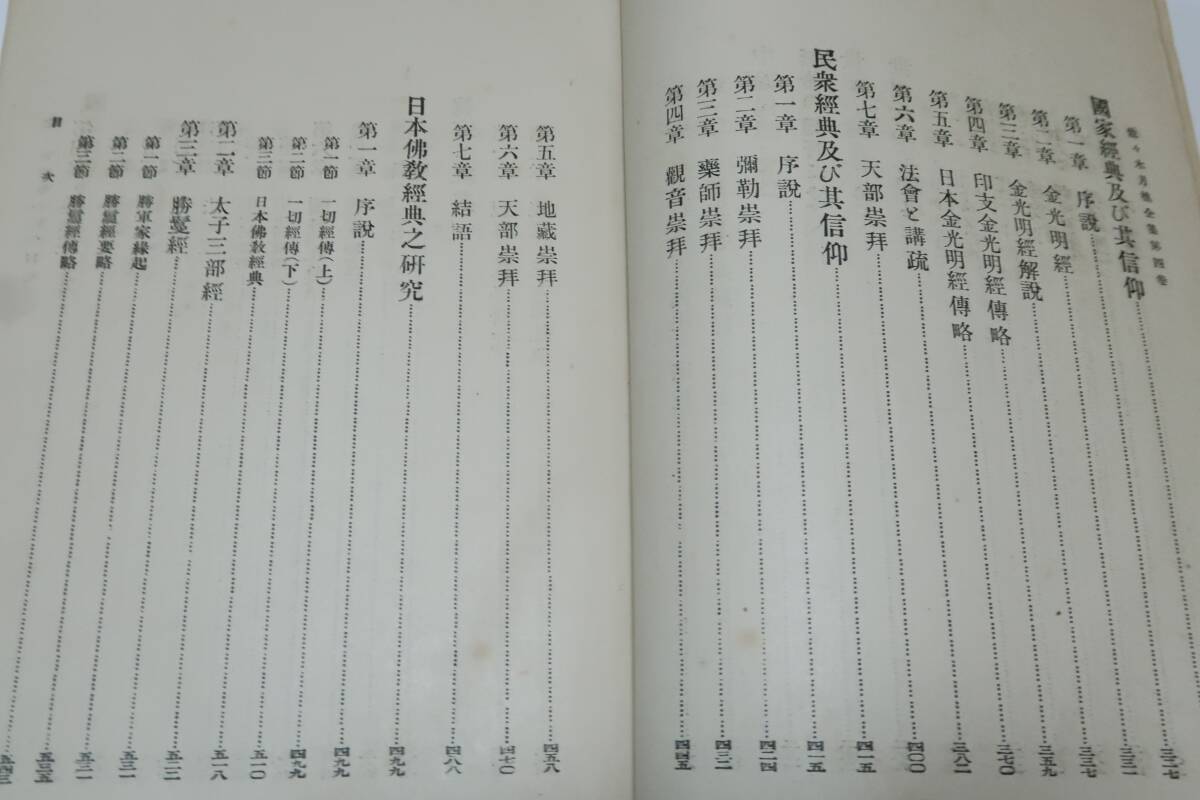 佐々木月樵全集第四卷
國家經典及び其信仰
第一章 序說 三二七
第二章 金光明經 三三一
第三章 金光明經解說 三三七
第四章 印支金光明經傳略 三五九
第五章 日本金光明經傳略 三七〇
第六章 法會と講疏 三八二
第七章 天部崇拜 四〇〇
民衆經典及び其信仰 四一五
第一章 序說 四一五
第二章 彌勒崇拜 四二四
第三章 藥師崇拜 四三二
第四章 觀音崇拜 四四五
第五章 地藏崇拜 四五八
第六章 天部崇拜 四七〇
第七章 結語 四八八
日本佛教經典之研究 四九九
第一章 序說 四九九
第一節 一切經傳(上) 四九九
第二節 一切經傳(下) 五一〇
第三節 日本佛教經典 五一八
第二章 太子三部經
第三章 勝鬘經
第一節 勝軍家緣起
第二節 勝鬘經要略 五三五
第三節 勝鬘經傳略 五四三
目次